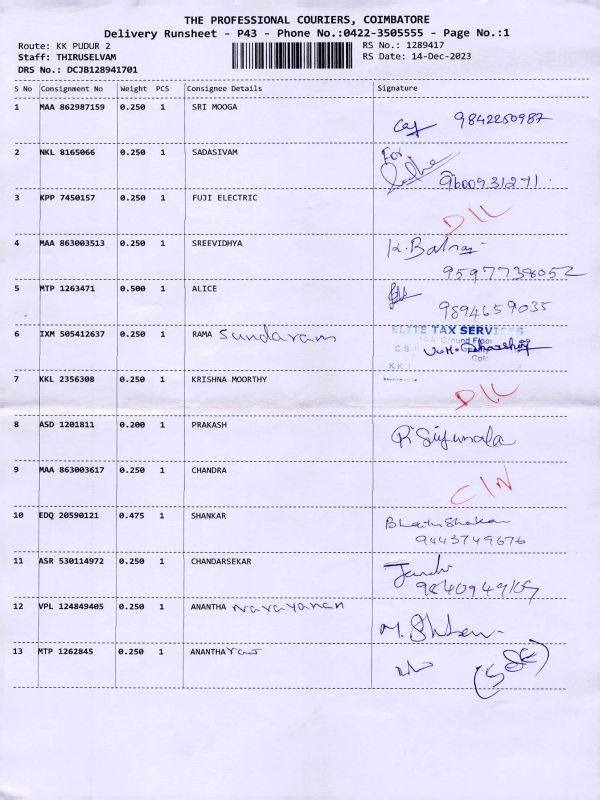 THE PROFESSIONAL COURIERS, COIMBATORE
Delivery Runsheet - P43 - Phone No.:0422-3505555 - Page No.:1
Route: KK PUDUR 2 RS No.: 1289417
Staff: THIRUSELVAM RS Date: 14-Dec-2023
DRS No.: DCJB128941701
S No Consignment No Weight PCS Consignee Details Signature
1 MAA 862987159 0.250 1 SRI MOOGA
9842250987
2 NKL 8165066 0.250 1 SADASIVAM For
9600931271
3 KPP 7450157 0.250 1 FUJI ELECTRIC
D/L
4 MAA 863003513 0.250 1 SREEVIDHYA
9597738052
5 MTP 1263471 0.500 1 ALICE
9894659035
6 IXM 505412637 0.250 1 RAMA Sundaram ELYTE TAX SERVICES
Ground Floor
7 KKL 2356308 0.250 1 KRISHNA MOORTHY
D/L
8 ASD 1201811 0.200 1 PRAKASH
9 MAA 863003617 0.250 1 CHANDRA
C/N
10 EDQ 20590121 0.475 1 SHANKAR
9443749676
11 ASR 530114972 0.250 1 CHANDARSEKAR
12 VPL 124849405 0.250 1 ANANTHA Narayanan
13 MTP 1262845 0.250 1 ANANTHA rao